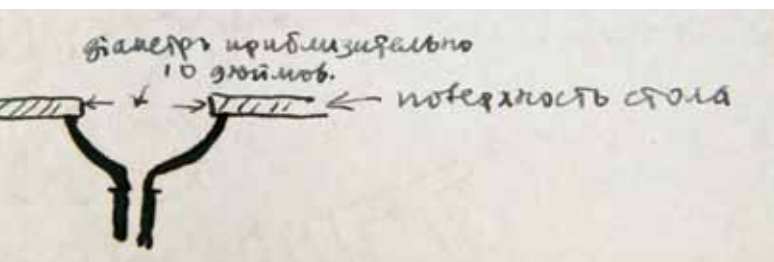 діаметръ приблизительно
10 дюймов.
поверхность стола